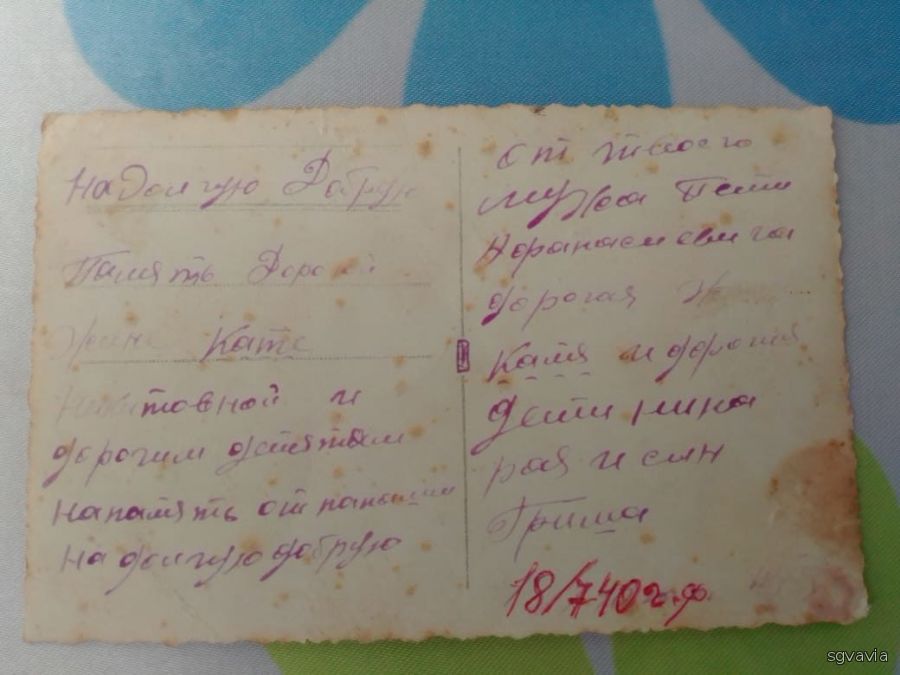 На Долгую Добрую
Память Дорогой
Жене Кате
и
дорогим детятам
на память от папаши
на долгую добрую
от твоего
мужа Пети
дорогая
Катя и дорогия
дети нина
рая и сын
Гриша
18/7 40 г. ф.
sgvavia